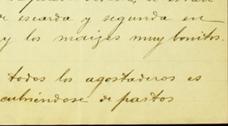 de escarda y segunda en
y los maizes muy bonitos.
todos los agostaderos es
cubriéndose de pastos